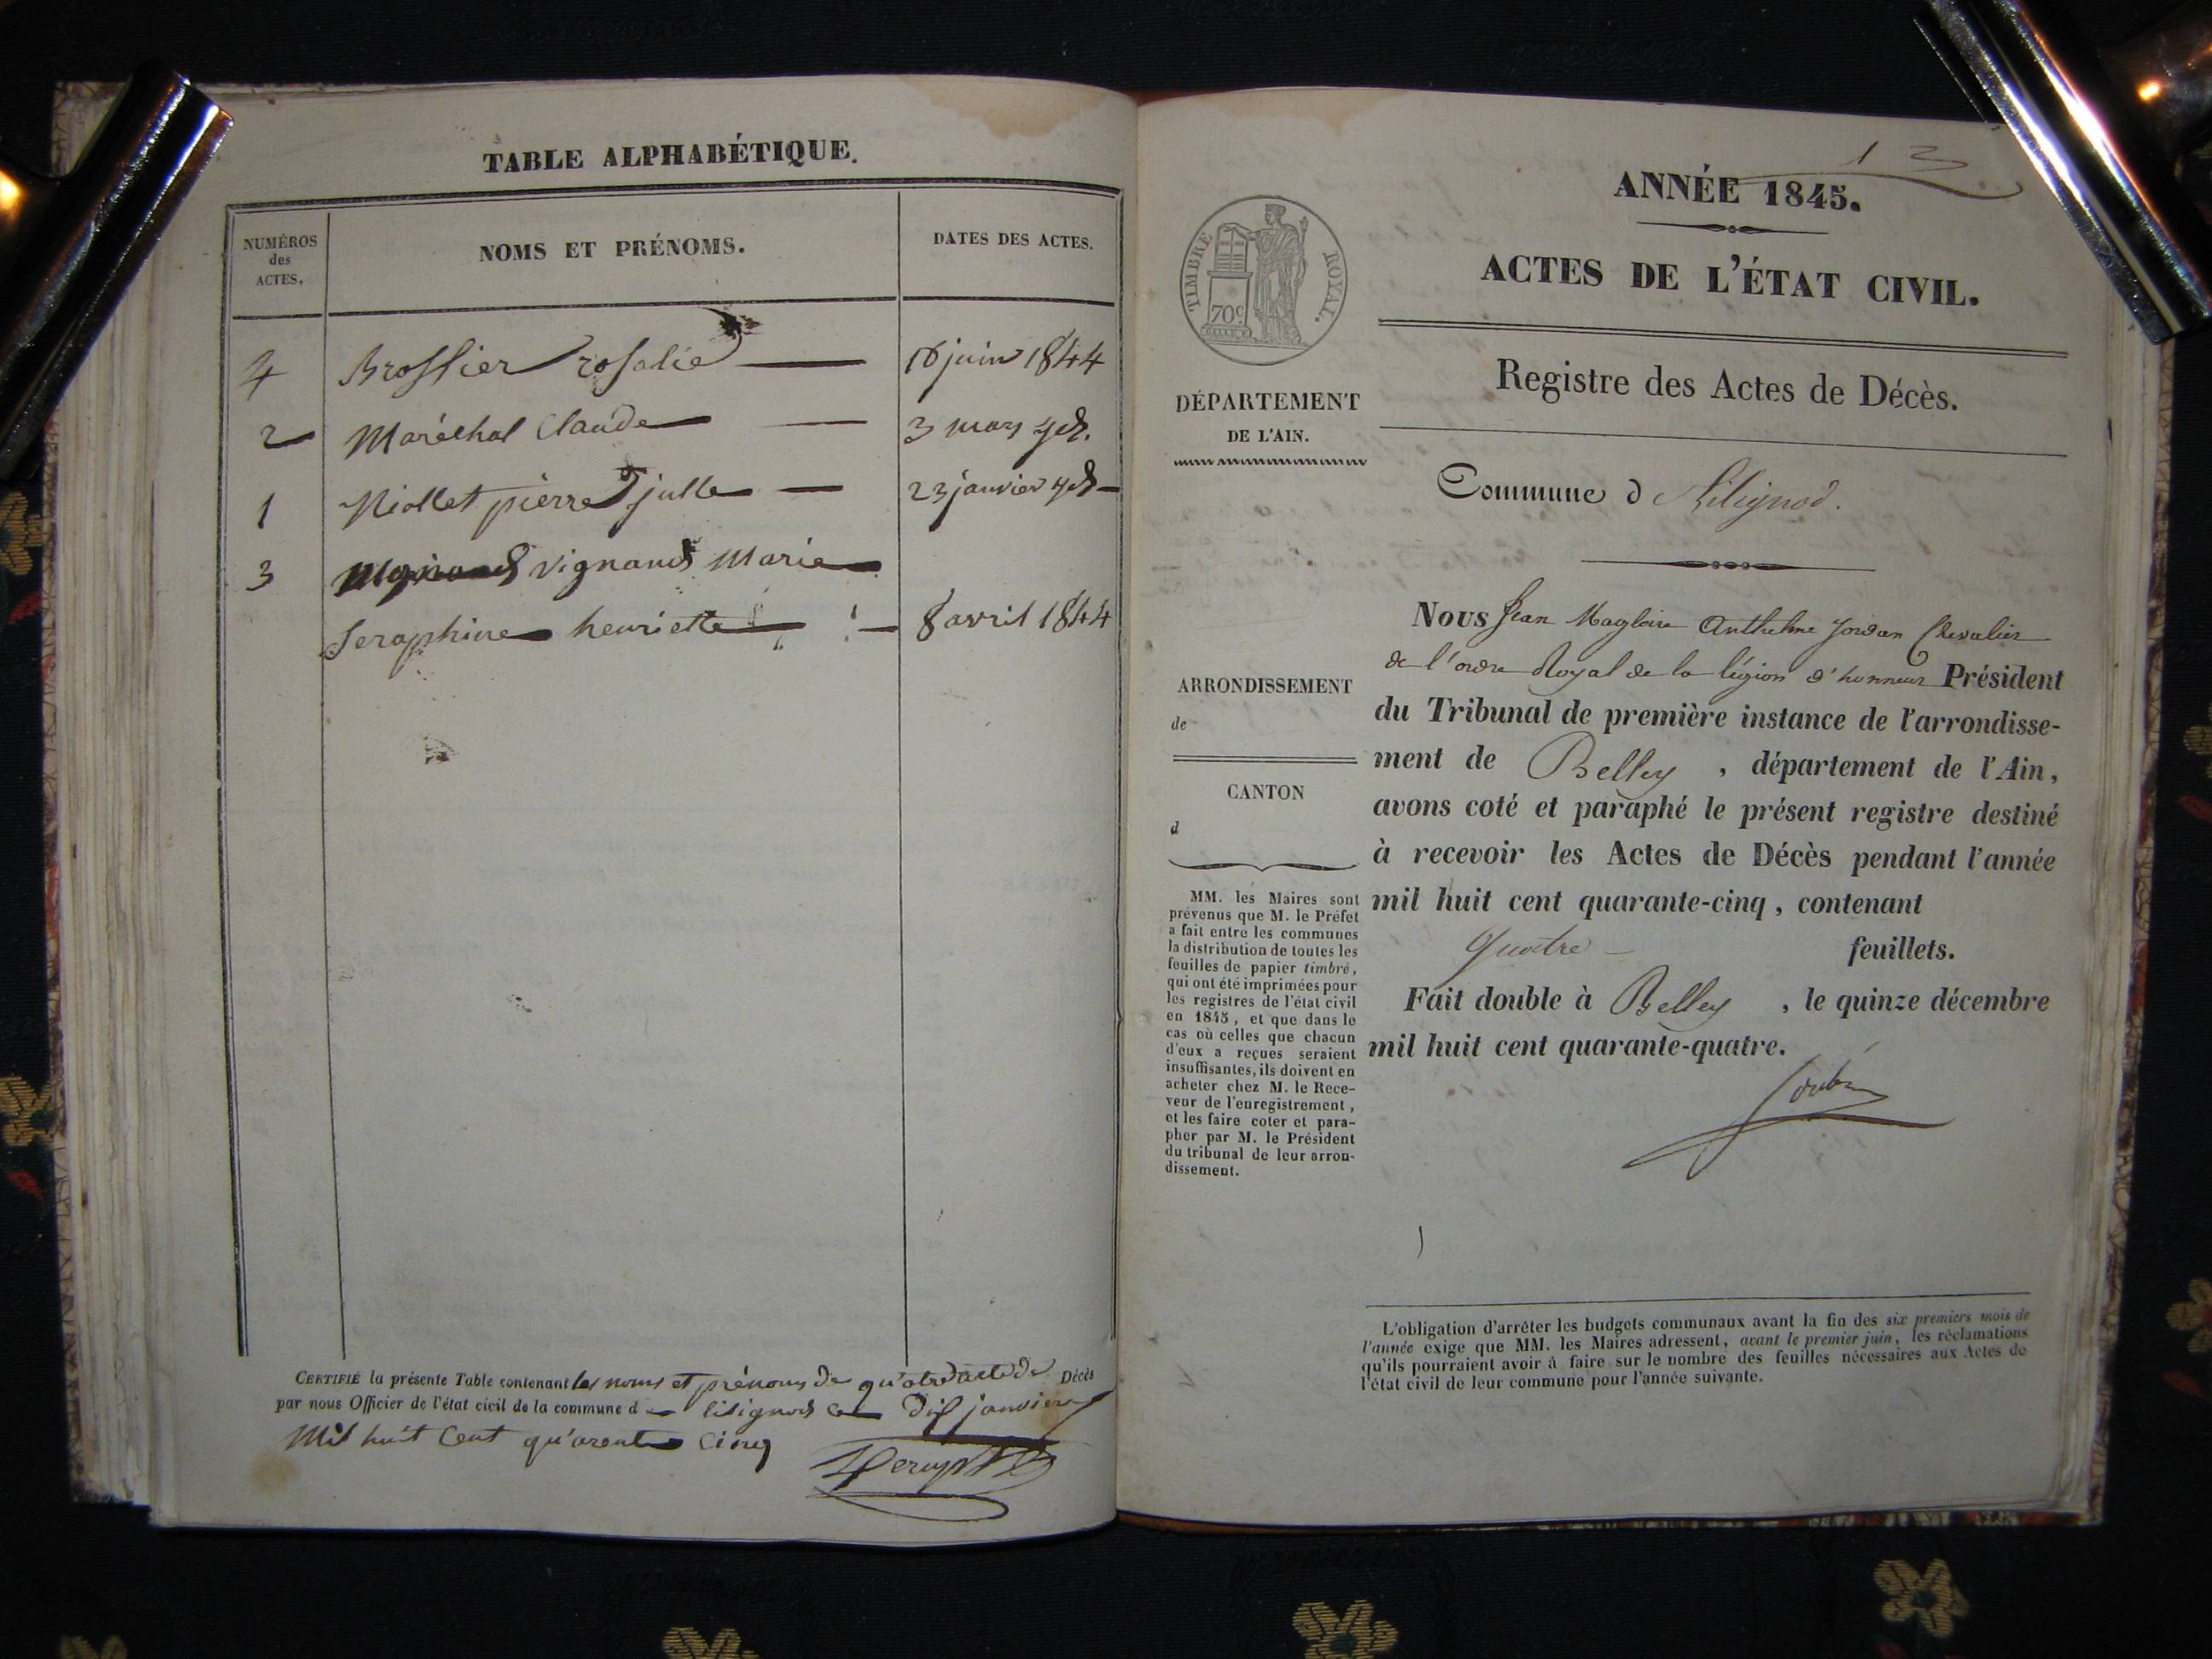 TABLE ALPHABÉTIQUE.
NUMÉROS
des
ACTES.
NOMS ET PRÉNOMS.
DATES DES ACTES.
4 Brossier rosalie 16 juin 1844
2 Maréchal Claude 3 mars
1 Niollet pierre julle 23 janvier
3 vignand Marie
Seraphine henriette 8 avril 1844
CERTIFIÉ la présente Table contenant les noms et prénoms de qu'atre actes de Décès
par nous Officier de l'état civil de la commune d lilignod le dix janvier
Mil huit Cent qu'arente Cinq
13
ANNÉE 1845.
ACTES DE L'ÉTAT CIVIL.
Registre des Actes de Décès.
TIMBRE ROYAL.
70c
DÉPARTEMENT
DE L'AIN.
Commune d Lilignod.
Nous Jean Magloire Anthelme Jordan Chevalier
de l'ordre Royal de la légion d'honneur Président
du Tribunal de première instance de l'arrondisse-
ment de Belley, département de l'Ain,
avons coté et paraphé le présent registre destiné
à recevoir les Actes de Décès pendant l'année
mil huit cent quarante-cinq, contenant
quatre feuillets.
Fait double à Belley, le quinze décembre
mil huit cent quarante-quatre.
ARRONDISSEMENT
de
CANTON
d
MM. les Maires sont
prévenus que M. le Préfet
a fait entre les communes
la distribution de toutes les
feuilles de papier timbré,
qui ont été imprimées pour
les registres de l'état civil
en 1845, et que dans le
cas où celles que chacun
d'eux a reçues seraient
insuffisantes, ils doivent en
acheter chez M. le Rece-
veur de l'enregistrement,
et les faire coter et para-
pher par M. le Président
du tribunal de leur arron-
dissement.
L'obligation d'arrêter les budgets communaux avant la fin des six premiers mois de
l'année exige que MM. les Maires adressent, avant le premier juin, les réclamations
qu'ils pourraient avoir à faire sur le nombre des feuilles nécessaires aux Actes de
l'état civil de leur commune pour l'année suivante.